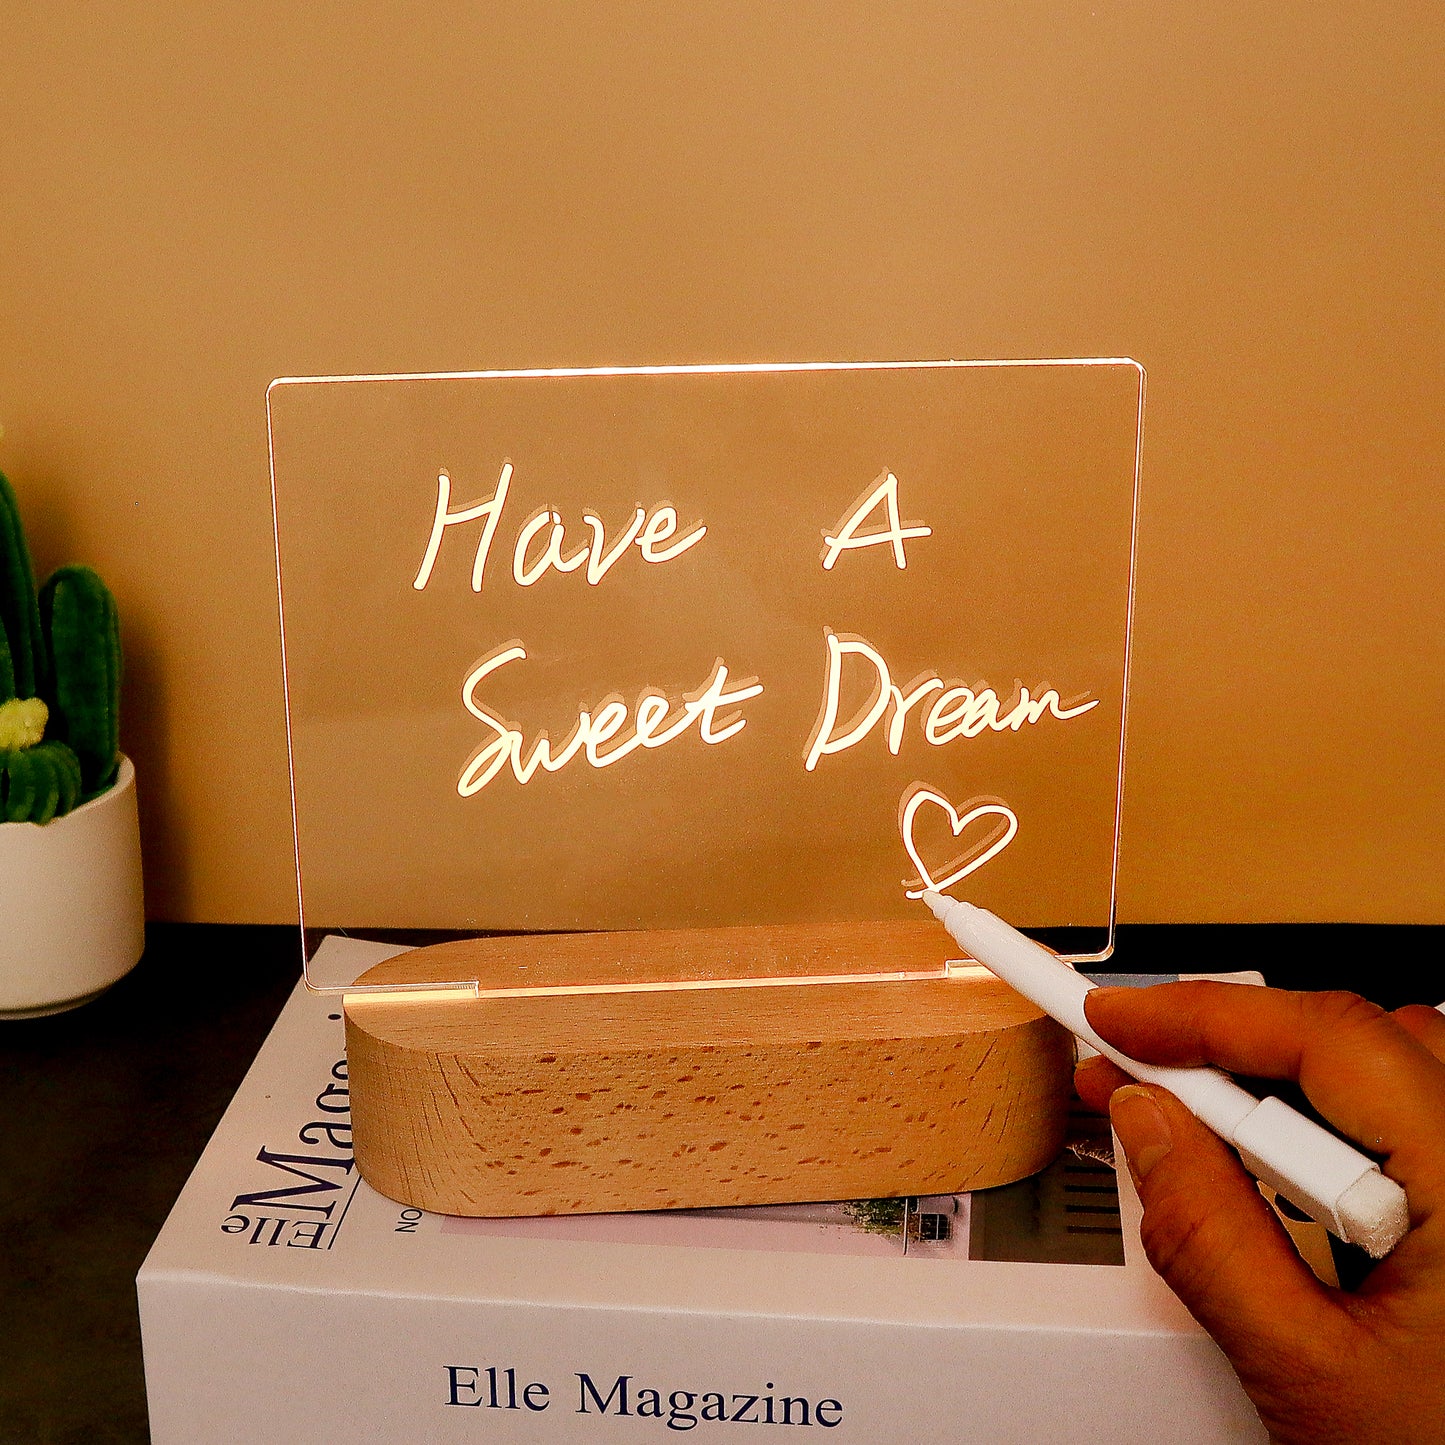 Have A
Sweet Dream
Elle Magazine
Elle
NO
Elle Magazine